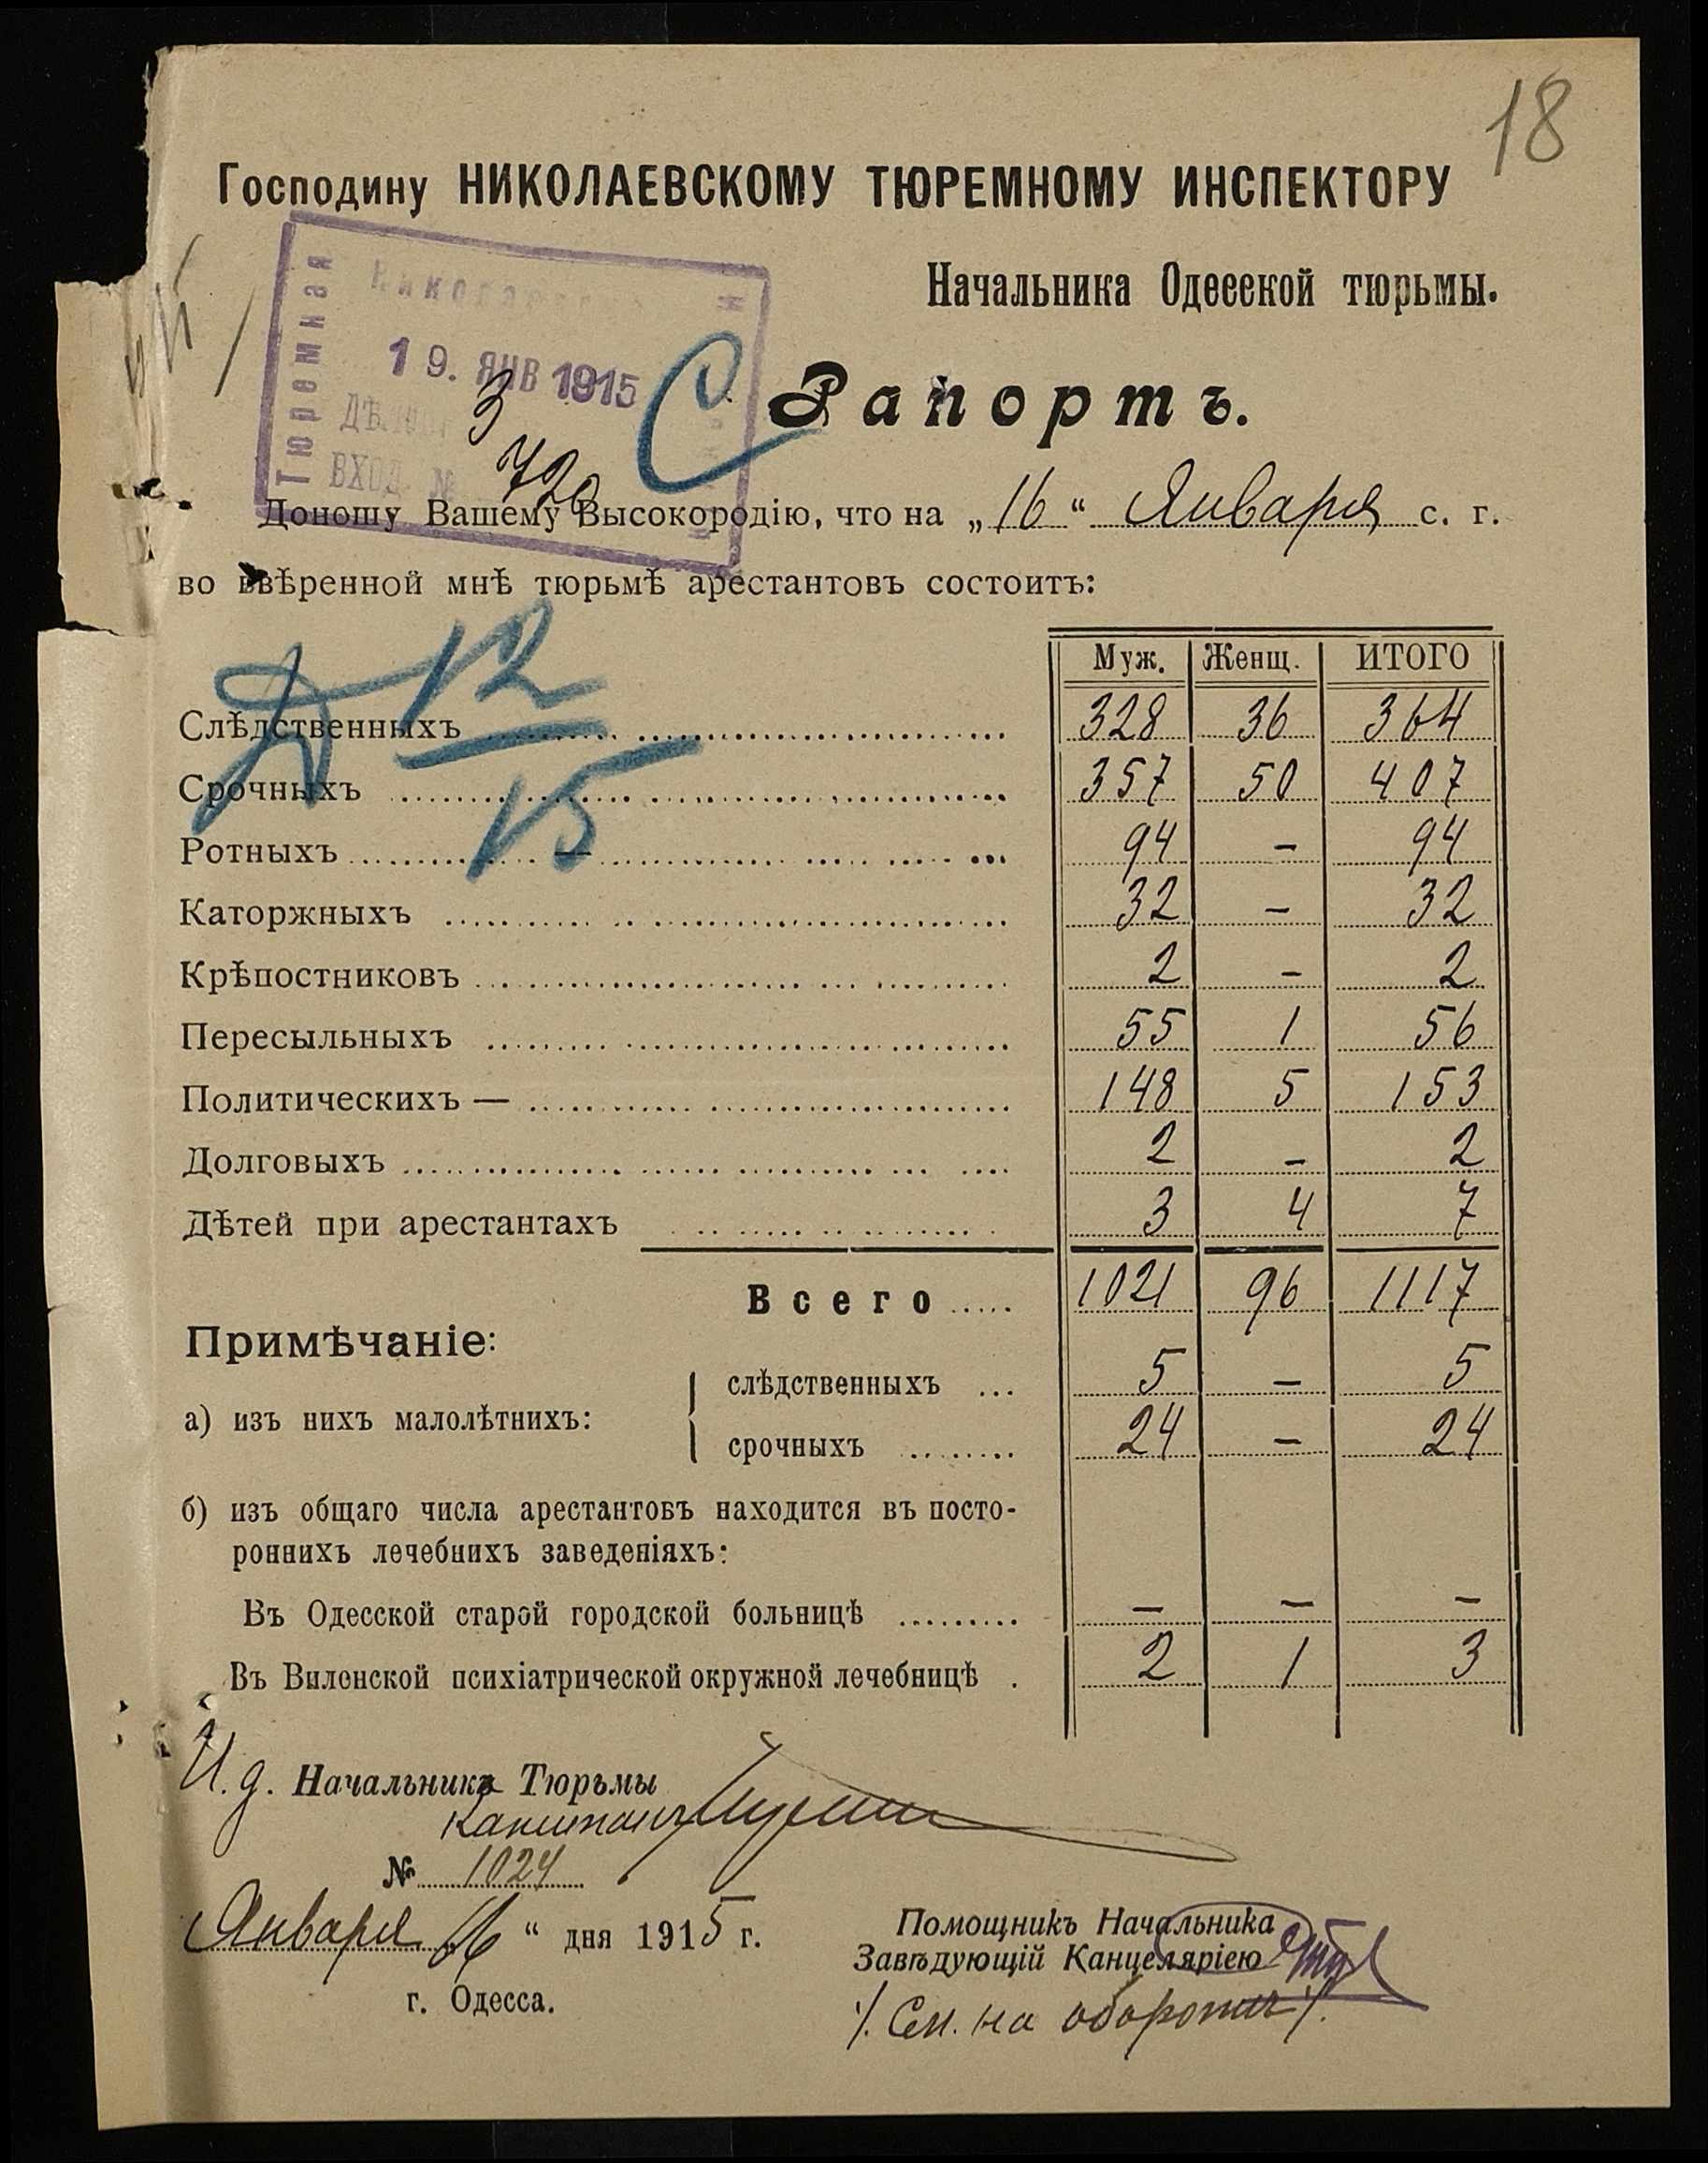 18
Господину НИКОЛАЕВСКОМУ ТЮРЕМНОМУ ИНСПЕКТОРУ
Начальника Одесской тюрьмы.
Тюремная
19. ЯНВ 1915
3
ВХОД. № 720
С
Рапортъ.
Доношу Вашему Высокородію, что на „16“ Января с. г.
во ввѣренной мнѣ тюрьмѣ арестантовъ состоитъ:
12
15
Муж. Женщ. ИТОГО
Слѣдственныхъ 328 36 364
Срочныхъ 357 50 407
Ротныхъ — 94 - 94
Каторжныхъ 32 - 32
Крѣпостниковъ 2 - 2
Пересыльныхъ 55 1 56
Политическихъ — 148 5 153
Долговыхъ 2 - 2
Дѣтей при арестантахъ 3 4 7
Всего 1021 96 1117
Примѣчаніе:
а) изъ нихъ малолѣтнихъ:
слѣдственныхъ 5 - 5
срочныхъ 24 - 24
б) изъ общаго числа арестантовъ находится въ посто-
роннихъ лечебнихъ заведеніяхъ:
Въ Одесской старой городской больницѣ - - -
Въ Виленской психіатрической окружной лечебницѣ 2 1 3
И. д. Начальника Тюрьмы
Капитанъ
№ 1024
Января 16 “ дня 1915 г.
г. Одесса.
Помощникъ Начальника
Завѣдующій Канцеляріею
/. См. на оборотѣ /.